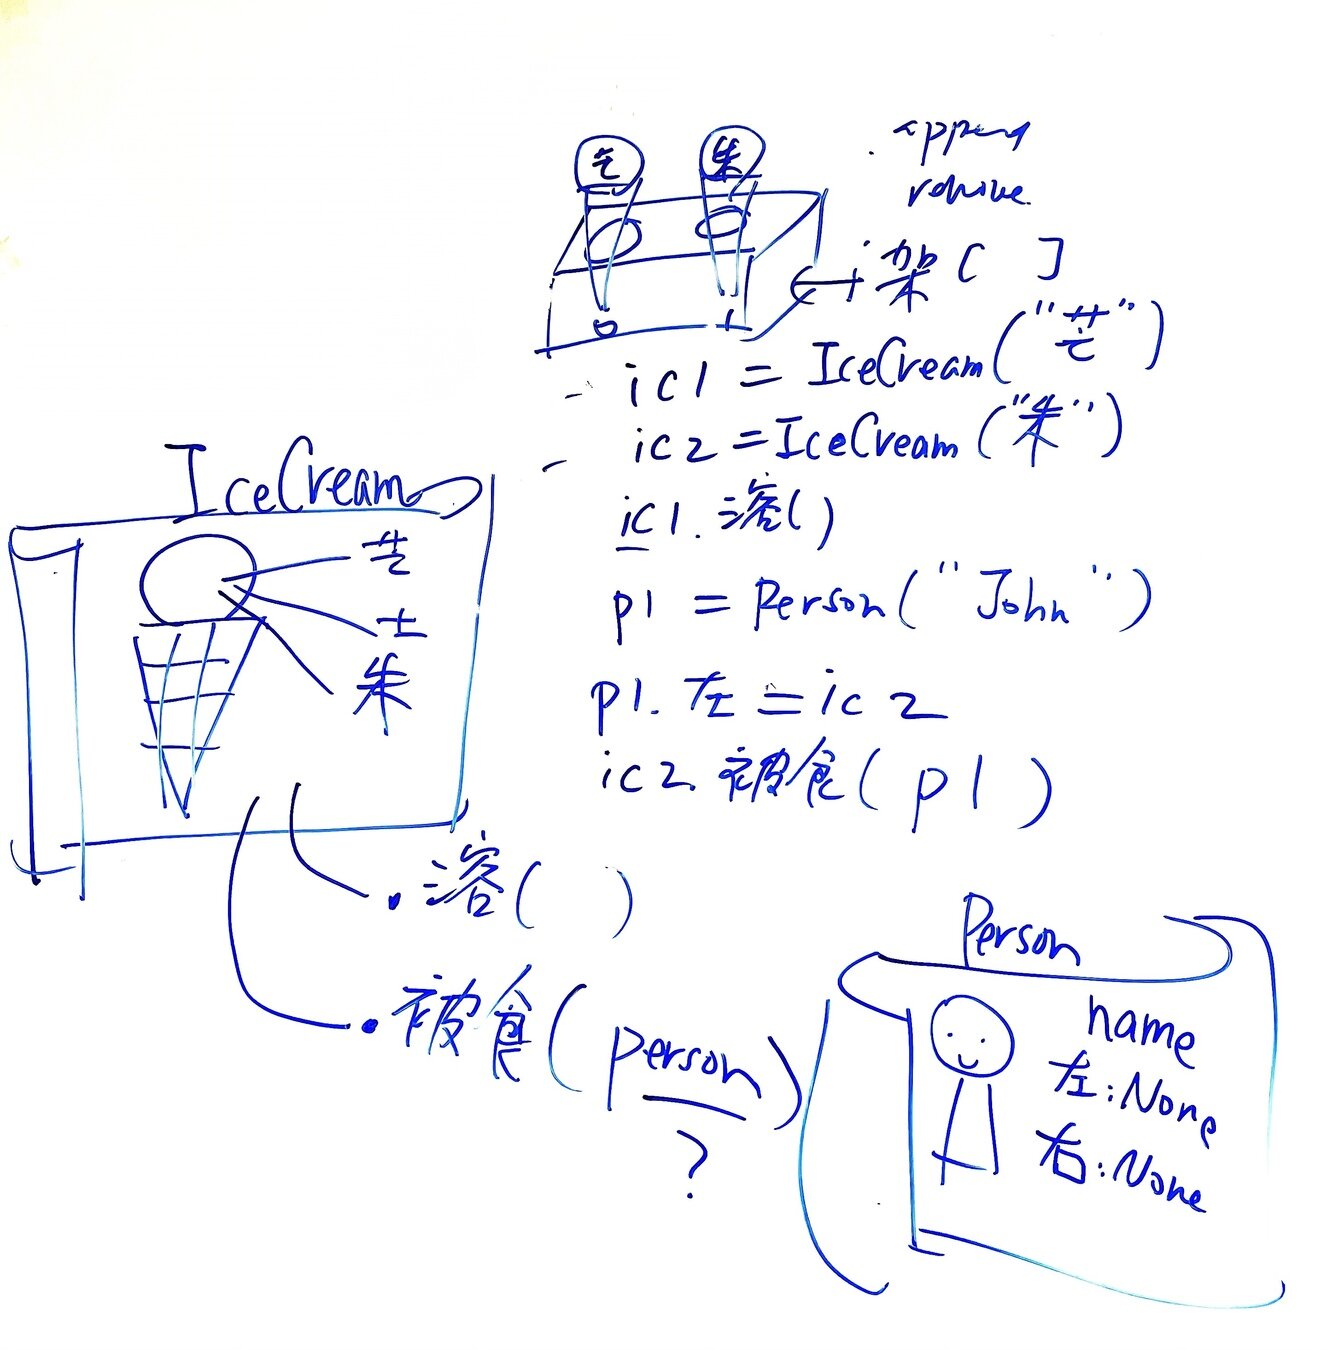 芒
朱
.append
remove
架[ ]
0
1
ic1 = IceCream("芒")
ic2 = IceCream("朱")
ic1.溶()
p1 = Person("John")
p1.左 = ic2
ic2.被食(p1)
IceCream
芒
士
朱
.溶( )
.被食(person)
?
Person
name
左:None
右:None